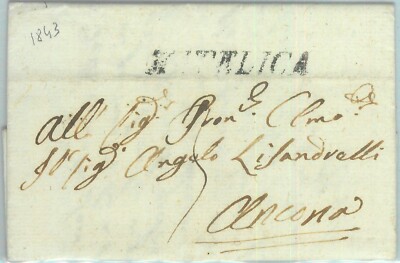 1843
MATELICA
All' Sig.r Pron.e Clmo.
Il Sig.r Angelo Lisandrelli
Ancona